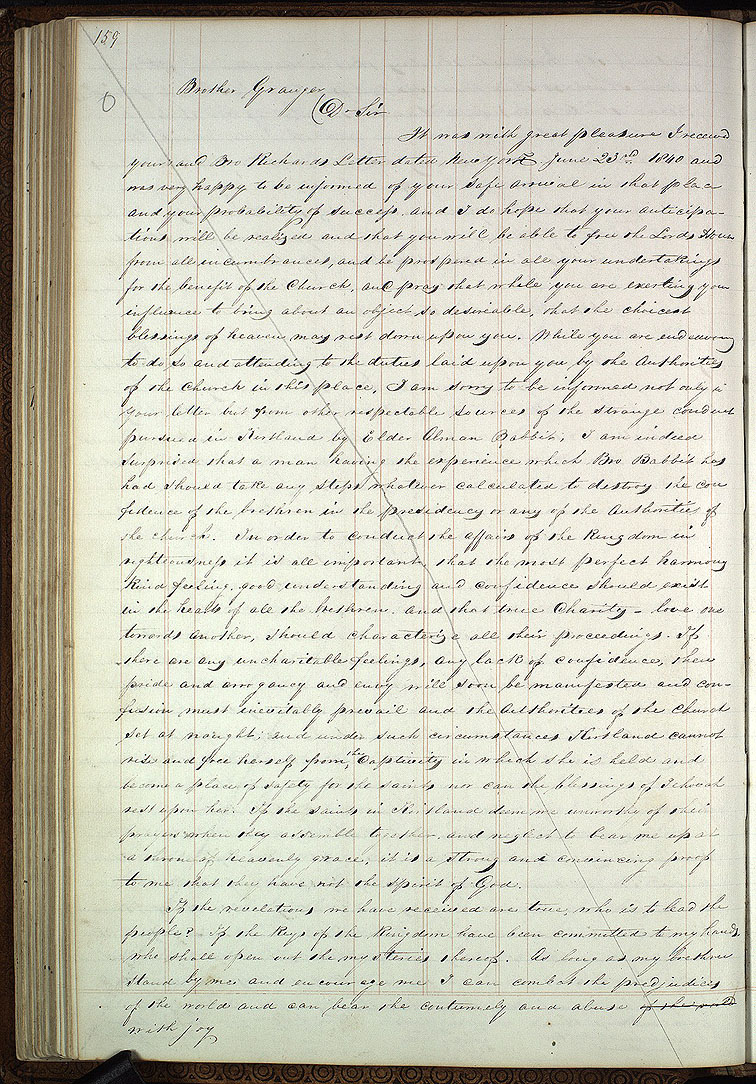 159
O
Brother Granger
Dr Sir
It was with great pleasure I received
yours and Bro Richards Letter dated New York June 23rd 1840 and
was very happy to be informed of your safe arrival in that place
and your probability of success. and I do hope that your anticipa-
tions will be realized and that you will be able to free the Lords House
from all incumbrances, and be prospered in all your undertakings
for the benefit of the Church, and pray that while you are exerting your
influence to bring about an object so desireable, that the choicest
blessings of heaven may rest down upon you. While you are endeavoring
to do so and attending to the duties laid upon you by the Authorities
of the Church in this place, I am sorry to be informed not only in
your letter but from other respectable sources of the strange conduct
pursued in Kirtland by Elder Alman Babbit, I am indeed
surprised that a man having the experience which Bro Babbit has
had should take any steps whatever calculated to destroy the con
fidence of the brethren in the presidency or any of the Authorities of
the church. In order to conduct the affairs of the Kingdom in
righteousness it is all important, that the most perfect harmony
kind feeling, good understanding and confidence should exist
in the hearts of all the brethren. and that true Charity - love one
towards another, should characterize all their proceedings. If
there are any uncharitable feelings, any lack of confidence, then
pride and arrogancy and envy will soon be manifested and con-
fusion must inevitably prevail and the Authorities of the Church
set at naught; and under such circumstances Kirtland cannot
rise and free herself from the Captivity in which she is held and
become a place of safety for the saints nor can the blessings of Jehovah
rest upon her. If the saints in Kirtland deem me unworthy of their
prayers when they assemble together, and neglect to bear me up at
a throne of heavenly grace, it is a strong and convincing proof
to me that they have not the spirit of God.
If the revelations we have received are true, who is to lead the
people? If the Keys of the Kingdom have been committed to my hands
who shall open out the mysteries thereof. As long as my brethren
stand by me and encourage me I can combat the predjudices
of the world and can bear the contumely and abuse of the world
with joy